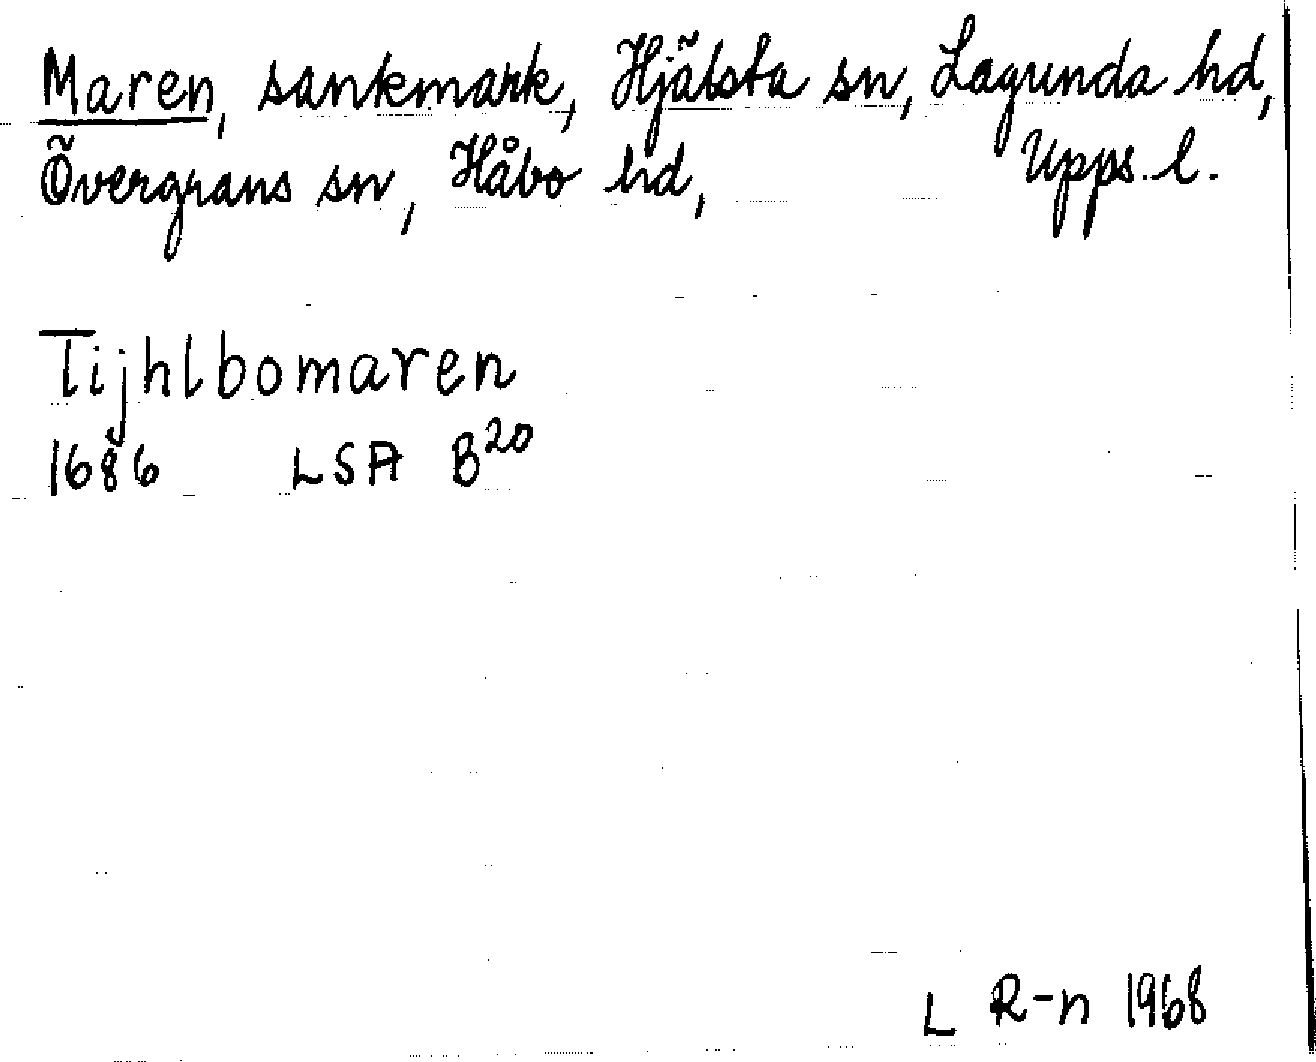 Maren, sankmark, Hjälsta sn, Lagunda hd,
Övergrans sn, Håbo hd, Upps. l.
Tijhlbomaren
1686 LSA B20
L R-n 1968